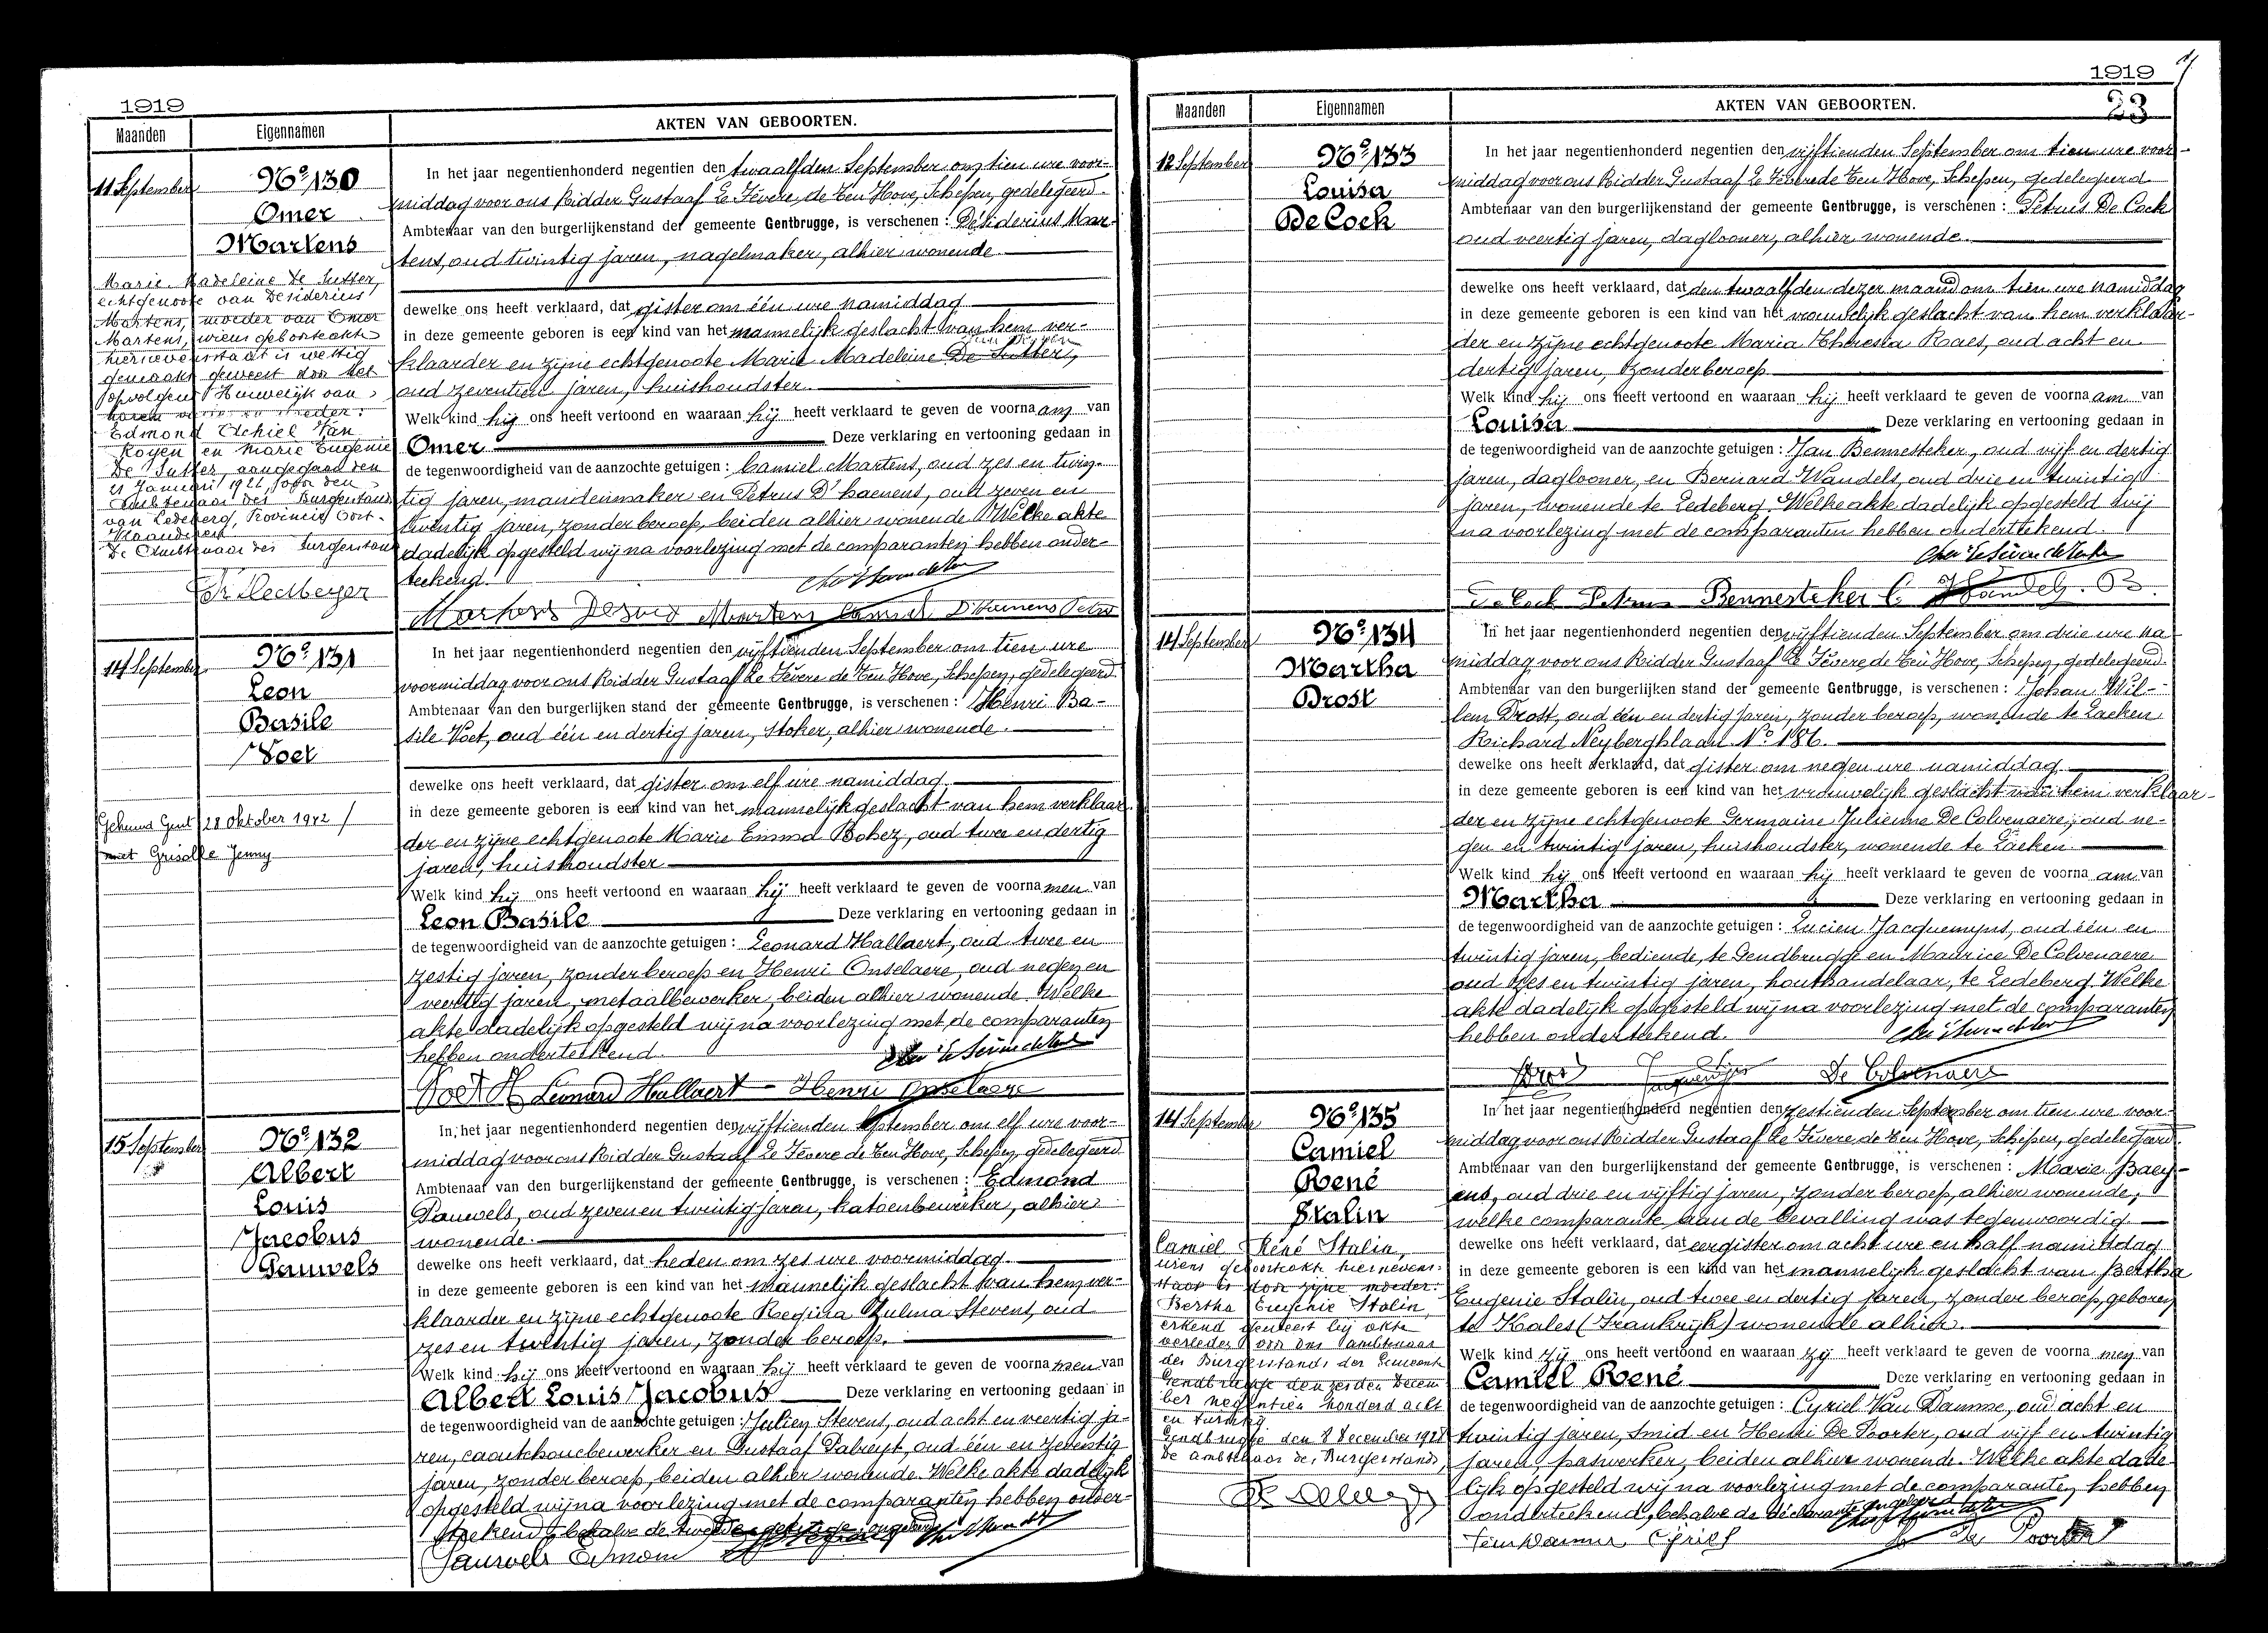 1919
Maanden
Eigennamen
AKTEN VAN GEBOORTEN.
11 September
Nº 130
Omer
Martens
Marie Madeleine De Sutter,
echtgenoote van Desiderius
Martens, moeder van Omer
Martens, wiens geboorteakte
hiernevensstaat is wettig
gemaakt geweest door het
opvolgend Huwelijk van
haren vader en moeder:
Edmond Ezechiel Van
Royen en Marie Eugenie
De Sutter, aangegaan den
21 Januari 1922, voor den
Ambtenaar des Burgerstand
van Ledeberg, Provincie Oost-
Vlaanderen
De Ambtenaar des Burgerstand
In het jaar negentienhonderd negentien den twaalfden September om tien ure voor-
middag voor ons Ridder Gustaaf Le Fèvere de Ten Hove, Schepen, gedelegeerd
Ambtenaar van den burgerlijkenstand der gemeente Gentbrugge, is verschenen : Désiderius Mar-
tens, oud twintig jaren, nagelmaker, alhier wonende
dewelke ons heeft verklaard, dat gister om één ure namiddag
in deze gemeente geboren is een kind van het mannelijk geslacht van hem ver-
klaarder en zijne echtgenoote Marie Madeleine De Sutter,
oud zeventien jaren, huishoudster.
Welk kind hij ons heeft vertoond en waaraan hij heeft verklaard te geven de voornaam van
Omer Deze verklaring en vertooning gedaan in
de tegenwoordigheid van de aanzochte getuigen : Camiel Martens, oud zes en twin-
tig jaren, mandenmaker en Petrus D'haenens, oud zeven en
twintig jaren, zonder beroep, beiden alhier wonende Welke akte
dadelijk opgesteld wij na voorlezing met de comparanten hebben onder-
teekend.
Martens Camiel D'Haenens Petrus
14 September
Nº 131
Leon
Basile
Voet
Gehuwd Gent 28 Oktober 1942
met Grisolle Jenny
In het jaar negentienhonderd negentien den vijftienden September om tien ure
voormiddag voor ons Ridder Gustaaf Le Fèvere de Ten Hove, Schepen, gedelegeerd
Ambtenaar van den burgerlijken stand der gemeente Gentbrugge, is verschenen : Henri Ba-
sile Voet, oud één en dertig jaren, stoker, alhier wonende.
dewelke ons heeft verklaard, dat gister om elf ure namiddag
in deze gemeente geboren is een kind van het mannelijk geslacht van hem verklaar-
der en zijne echtgenoote Marie Emma Bohez, oud twee en dertig
jaren, huishoudster
Welk kind hij ons heeft vertoond en waaraan hij heeft verklaard te geven de voornamen van
Leon Basile Deze verklaring en vertooning gedaan in
de tegenwoordigheid van de aanzochte getuigen : Leonard Hallaert, oud twee en
zestig jaren, zonder beroep en Henri Onselaere, oud negen en
veertig jaren, metaalbewerker, beiden alhier wonende. Welke
akte dadelijk opgesteld wij na voorlezing met de comparanten
hebben onderteekend.
Voet H Leonard Hallaert Henri Onselaere
15 September
Nº 132
Albert
Louis
Jacobus
Pauwels
In het jaar negentienhonderd negentien den vijftienden September om elf ure voor-
middag voor ons Ridder Gustaaf Le Fèvere de Ten Hove, Schepen, gedelegeerd
Ambtenaar van den burgerlijkenstand der gemeente Gentbrugge, is verschenen : Edmond
Pauwels, oud zeven en twintig jaren, katoenbewerker, alhier
wonende.
dewelke ons heeft verklaard, dat heden om zes ure voormiddag
in deze gemeente geboren is een kind van het mannelijk geslacht van hem ver-
klaarder en zijne echtgenoote Regina Zulma Stevens, oud
zes en twintig jaren, zonder beroep.
Welk kind hij ons heeft vertoond en waaraan hij heeft verklaard te geven de voornamen van
Albert Louis Jacobus Deze verklaring en vertooning gedaan in
de tegenwoordigheid van de aanzochte getuigen : Julien Stevens, oud acht en veertig ja-
ren, caoutchoucbewerker en Gustaaf Pabreyt, oud één en zeventig
jaren, zonder beroep, beiden alhier wonende. Welke akte dadelijk
opgesteld wij na voorlezing met de comparanten hebben onder-
teekend, behalve de tweede getuige
Pauwels Edmond
1919
23
Maanden
Eigennamen
AKTEN VAN GEBOORTEN.
12 September
Nº 133
Louisa
De Cock
In het jaar negentienhonderd negentien den vijftienden September om tien ure voor-
middag voor ons Ridder Gustaaf Le Fèvere de Ten Hove, Schepen, gedelegeerd
Ambtenaar van den burgerlijkenstand der gemeente Gentbrugge, is verschenen : Petrus De Cock
oud veertig jaren, daglooner, alhier wonende.
dewelke ons heeft verklaard, dat den twaalfden dezer maand om tien ure namiddag
in deze gemeente geboren is een kind van het vrouwelijk geslacht van hem verklaar-
der en zijne echtgenoote Maria Theresia Raes, oud acht en
dertig jaren, zonder beroep
Welk kind hij ons heeft vertoond en waaraan hij heeft verklaard te geven de voornaam van
Louisa Deze verklaring en vertooning gedaan in
de tegenwoordigheid van de aanzochte getuigen : Jan Bennesteker, oud vijf en dertig
jaren, daglooner, en Bernard Wandels, oud drie en twintig
jaren, wonende te Ledeberg. Welke akte dadelijk opgesteld wij
na voorlezing met de comparanten hebben onderteekend.
De Cock Petrus Bennesteker
14 September
Nº 134
Martha
Drost
In het jaar negentienhonderd negentien den vijftienden September om drie ure na-
middag voor ons Ridder Gustaaf Le Fèvere de Ten Hove, Schepen, gedelegeerd
Ambtenaar van den burgerlijken stand der gemeente Gentbrugge, is verschenen : Johan Wil-
lem Drost, oud één en dertig jaren, zonder beroep, wonende te Laeken
Richard Neyberghlaan Nº 186.
dewelke ons heeft verklaard, dat gister om negen ure namiddag
in deze gemeente geboren is een kind van het vrouwelijk geslacht van hem verklaar-
der en zijne echtgenoote Germaine Julienne De Colvenaere, oud ne-
gen en twintig jaren, huishoudster, wonende te Laeken.
Welk kind hij ons heeft vertoond en waaraan hij heeft verklaard te geven de voornaam van
Martha Deze verklaring en vertooning gedaan in
de tegenwoordigheid van de aanzochte getuigen : Lucien Jacquemyns, oud één en
twintig jaren, bediende, te Gendbrugge en Maurice De Colvenaere
oud zes en twintig jaren, houthandelaar, te Ledeberg. Welke
akte dadelijk opgesteld wij na voorlezing met de comparanten
hebben onderteekend.
De Colvenaere
14 September
Nº 135
Camiel
René
Stalin
Camiel René Stalin,
wiens geboorteakte hiernevens-
staat is door zijne moeder:
Bertha Eugenie Stalin
erkend geweest bij akte
verleden voor ons Ambtenaar
des Burgerstands der Gemeente
Gendbrugge den zesden Decem
ber negentien honderd acht
en twintig
Gendbrugge den 8 December 1928
De Ambtenaar des Burgerstands,
In het jaar negentienhonderd negentien den zestienden September om tien ure voor-
middag voor ons Ridder Gustaaf Le Fèvere de Ten Hove, Schepen, gedelegeerd
Ambtenaar van den burgerlijkenstand der gemeente Gentbrugge, is verschenen : Marie Baey-
ens, oud drie en vijftig jaren, zonder beroep, alhier wonende,
welke comparante aan de bevalling was tegenwoordig
dewelke ons heeft verklaard, dat eergister om acht ure en half namiddag
in deze gemeente geboren is een kind van het mannelijk geslacht van Bertha
Eugenie Stalin, oud twee en dertig jaren, zonder beroep, geboren
te Kales (Frankrijk) wonende alhier.
Welk kind zij ons heeft vertoond en waaraan zij heeft verklaard te geven de voornamen van
Camiel René Deze verklaring en vertooning gedaan in
de tegenwoordigheid van de aanzochte getuigen : Cyriel Van Damme, oud acht en
twintig jaren, smid en Henri De Poorter, oud vijf en twintig
jaren, paswerker, beiden alhier wonende. Welke akte dade-
lijk opgesteld wij na voorlezing met de comparanten hebben
onderteekend, behalve de déclarante ongeleerd
Van Damme Cyriel De Poorter